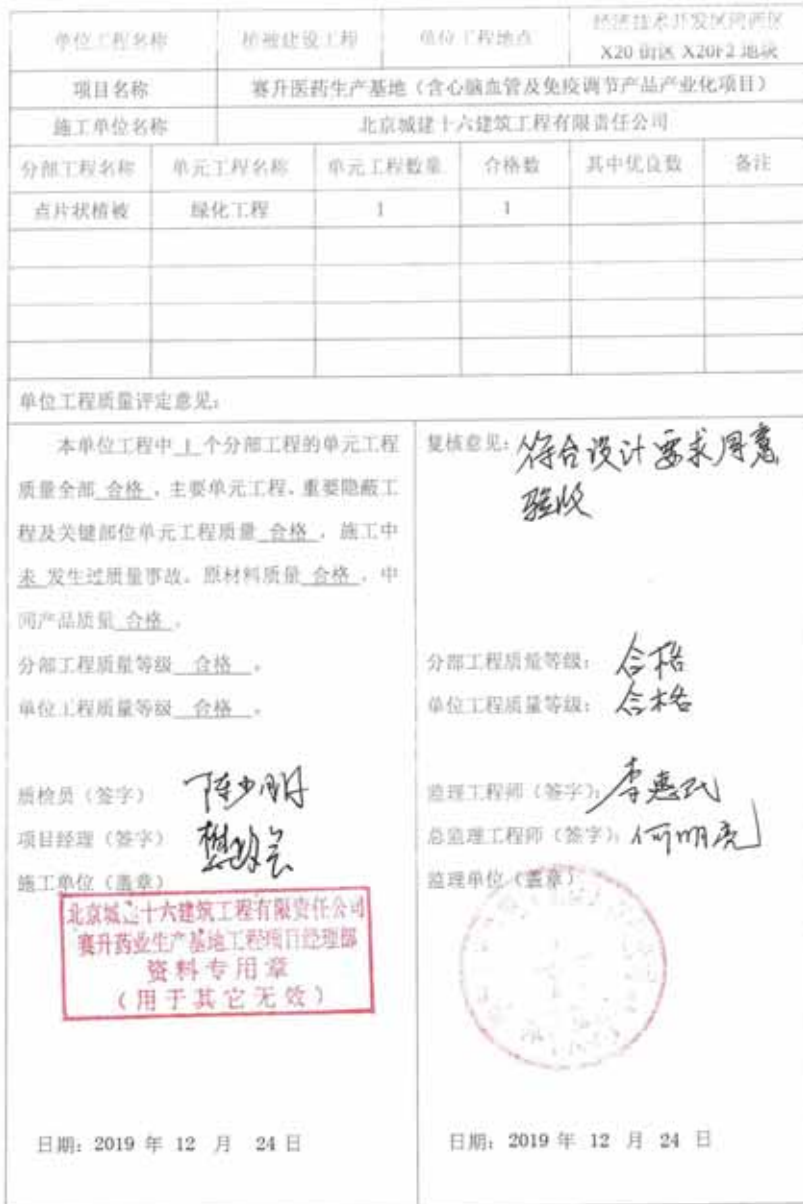 单位工程名称 植被建设工程 单位工程地点 经济技术开发区河西区
X20 街区 X20F2 地块
项目名称 赛升医药生产基地（含心脑血管及免疫调节产品产业化项目）
施工单位名称 北京城建十六建筑工程有限责任公司
分部工程名称 单元工程名称 单元工程数量 合格数 其中优良数 备注
点片状植被 绿化工程 1 1
单位工程质量评定意见：
本单位工程中 1 个分部工程的单元工程
质量全部 合格 ，主要单元工程、重要隐蔽工
程及关键部位单元工程质量 合格 ，施工中
未 发生过质量事故。原材料质量 合格 ，中
间产品质量 合格 。
分部工程质量等级 合格 。
单位工程质量等级 合格 。
质检员（签字） 陈少明
项目经理（签字）
施工单位（盖章）
北京城建十六建筑工程有限责任公司
赛升药业生产基地工程项目经理部
资料专用章
（用于其它无效）
日期：2019 年 12 月 24 日
复核意见：符合设计要求同意
验收
分部工程质量等级：合格
单位工程质量等级：合格
监理工程师（签字）：李惠民
总监理工程师（签字）：何明亮
监理单位（盖章）
日期：2019 年 12 月 24 日